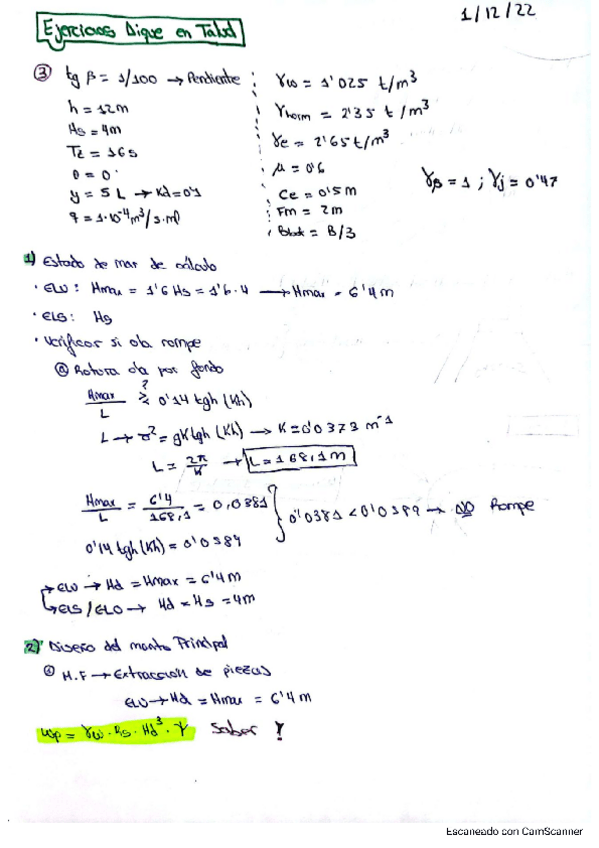 Ejercicios Dique en Talud
1/12/22
③ tg β = 1/100 → Pendiente
h = 12m
Hs = 4m
Tz = 16s
θ = 0°
y = 5 L → Kd = 0'1
q = 1·10⁻⁴ m³/s·ml
γw = 1'025 t/m³
γhorm = 2'35 t/m³
γe = 2'65 t/m³
μ = 0'6
Ce = 0'5 m
Fm = 2m
Block = B/3
γβ = 1 ; γj = 0'47
1) Estado de mar de cálculo
· ELU : Hmax = 1'6 Hs = 1'6 · 4 → Hmax = 6'4 m
· ELS : Hs
· Verificar si ola rompe
ⓐ Rotura ola por fondo
Hmax/L ≥? 0'14 tgh (Kh)
L → σ² = gK tgh (Kh) → K = 0'0373 m⁻¹
L = 2π/K → L = 168,1 m
Hmax/L = 6'4/168,1 = 0,0381
0'14 tgh (Kh) = 0'0589
0'0381 < 0'0589 → NO Rompe
ELU → Hd = Hmax = 6'4 m
ELS / ELO → Hd = Hs = 4m
2) Diseño del manto Principal
M.F → Extracción de piezas
ELU → Hd = Hmax = 6'4 m
Wp = γw · Rs · Hd³ · Ψ Saber !
Escaneado con CamScanner